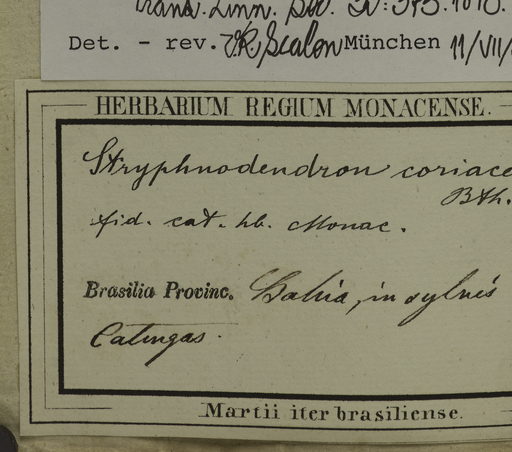 Trans. Linn. Soc. 30: 373. 1875.
Det. - rev. V.R. Scalon München 11/VII/
HERBARIUM REGIUM MONACENSE.
Stryphnodendron coriace
Bth.
fid. cat. hb. Monac.
Brasilia Provinc. Bahia, in sylvis
Catingas.
Martii iter brasiliense.